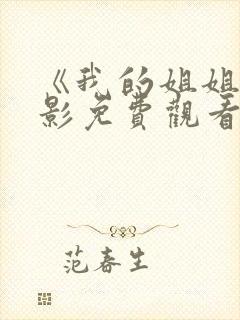 《我的姐姐
影免費觀看
范春生